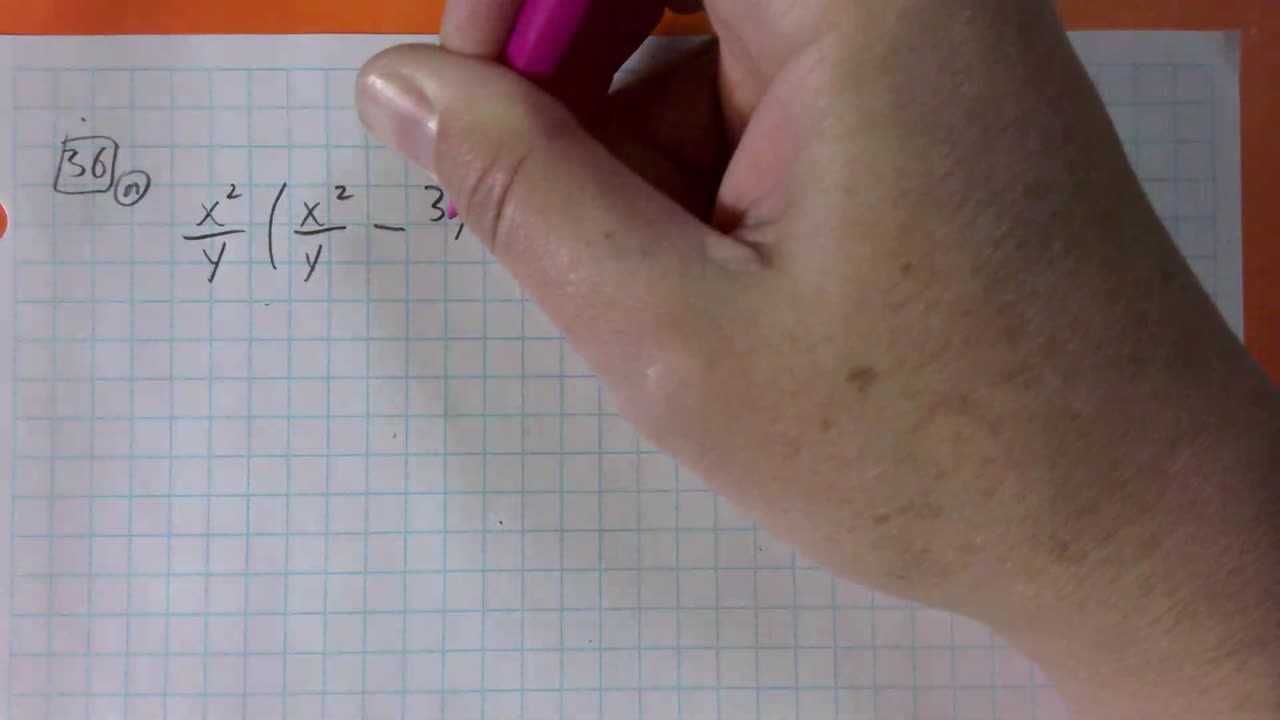 36 n x²/y ( x²/y - 3